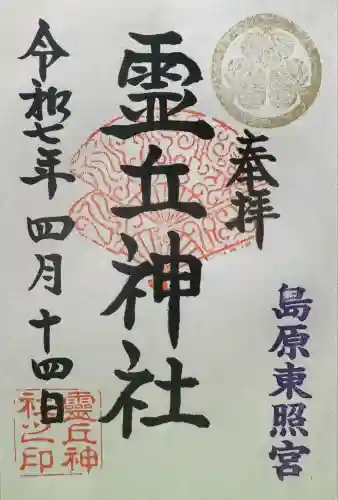 奉拝
島原東照宮
霊丘神社
令和七年四月十四日
靈丘神社之印